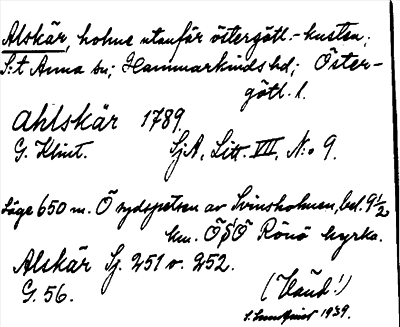 Alskär, holme utanför östergötl.-kusten;
S:t Anna sn; Hammarkinds hd; Öster-
götl. l.
Ahlskär 1789.
G. Klint. SjA, Litt. VII, N:o 9.
Läge 650 m. Ö sydspetsen av Svinsholmen, bel. 9 1/2
km. ÖSÖ Rönö kyrka.
Alskär Sj. 251 v. 252.
G. 56.
1939.